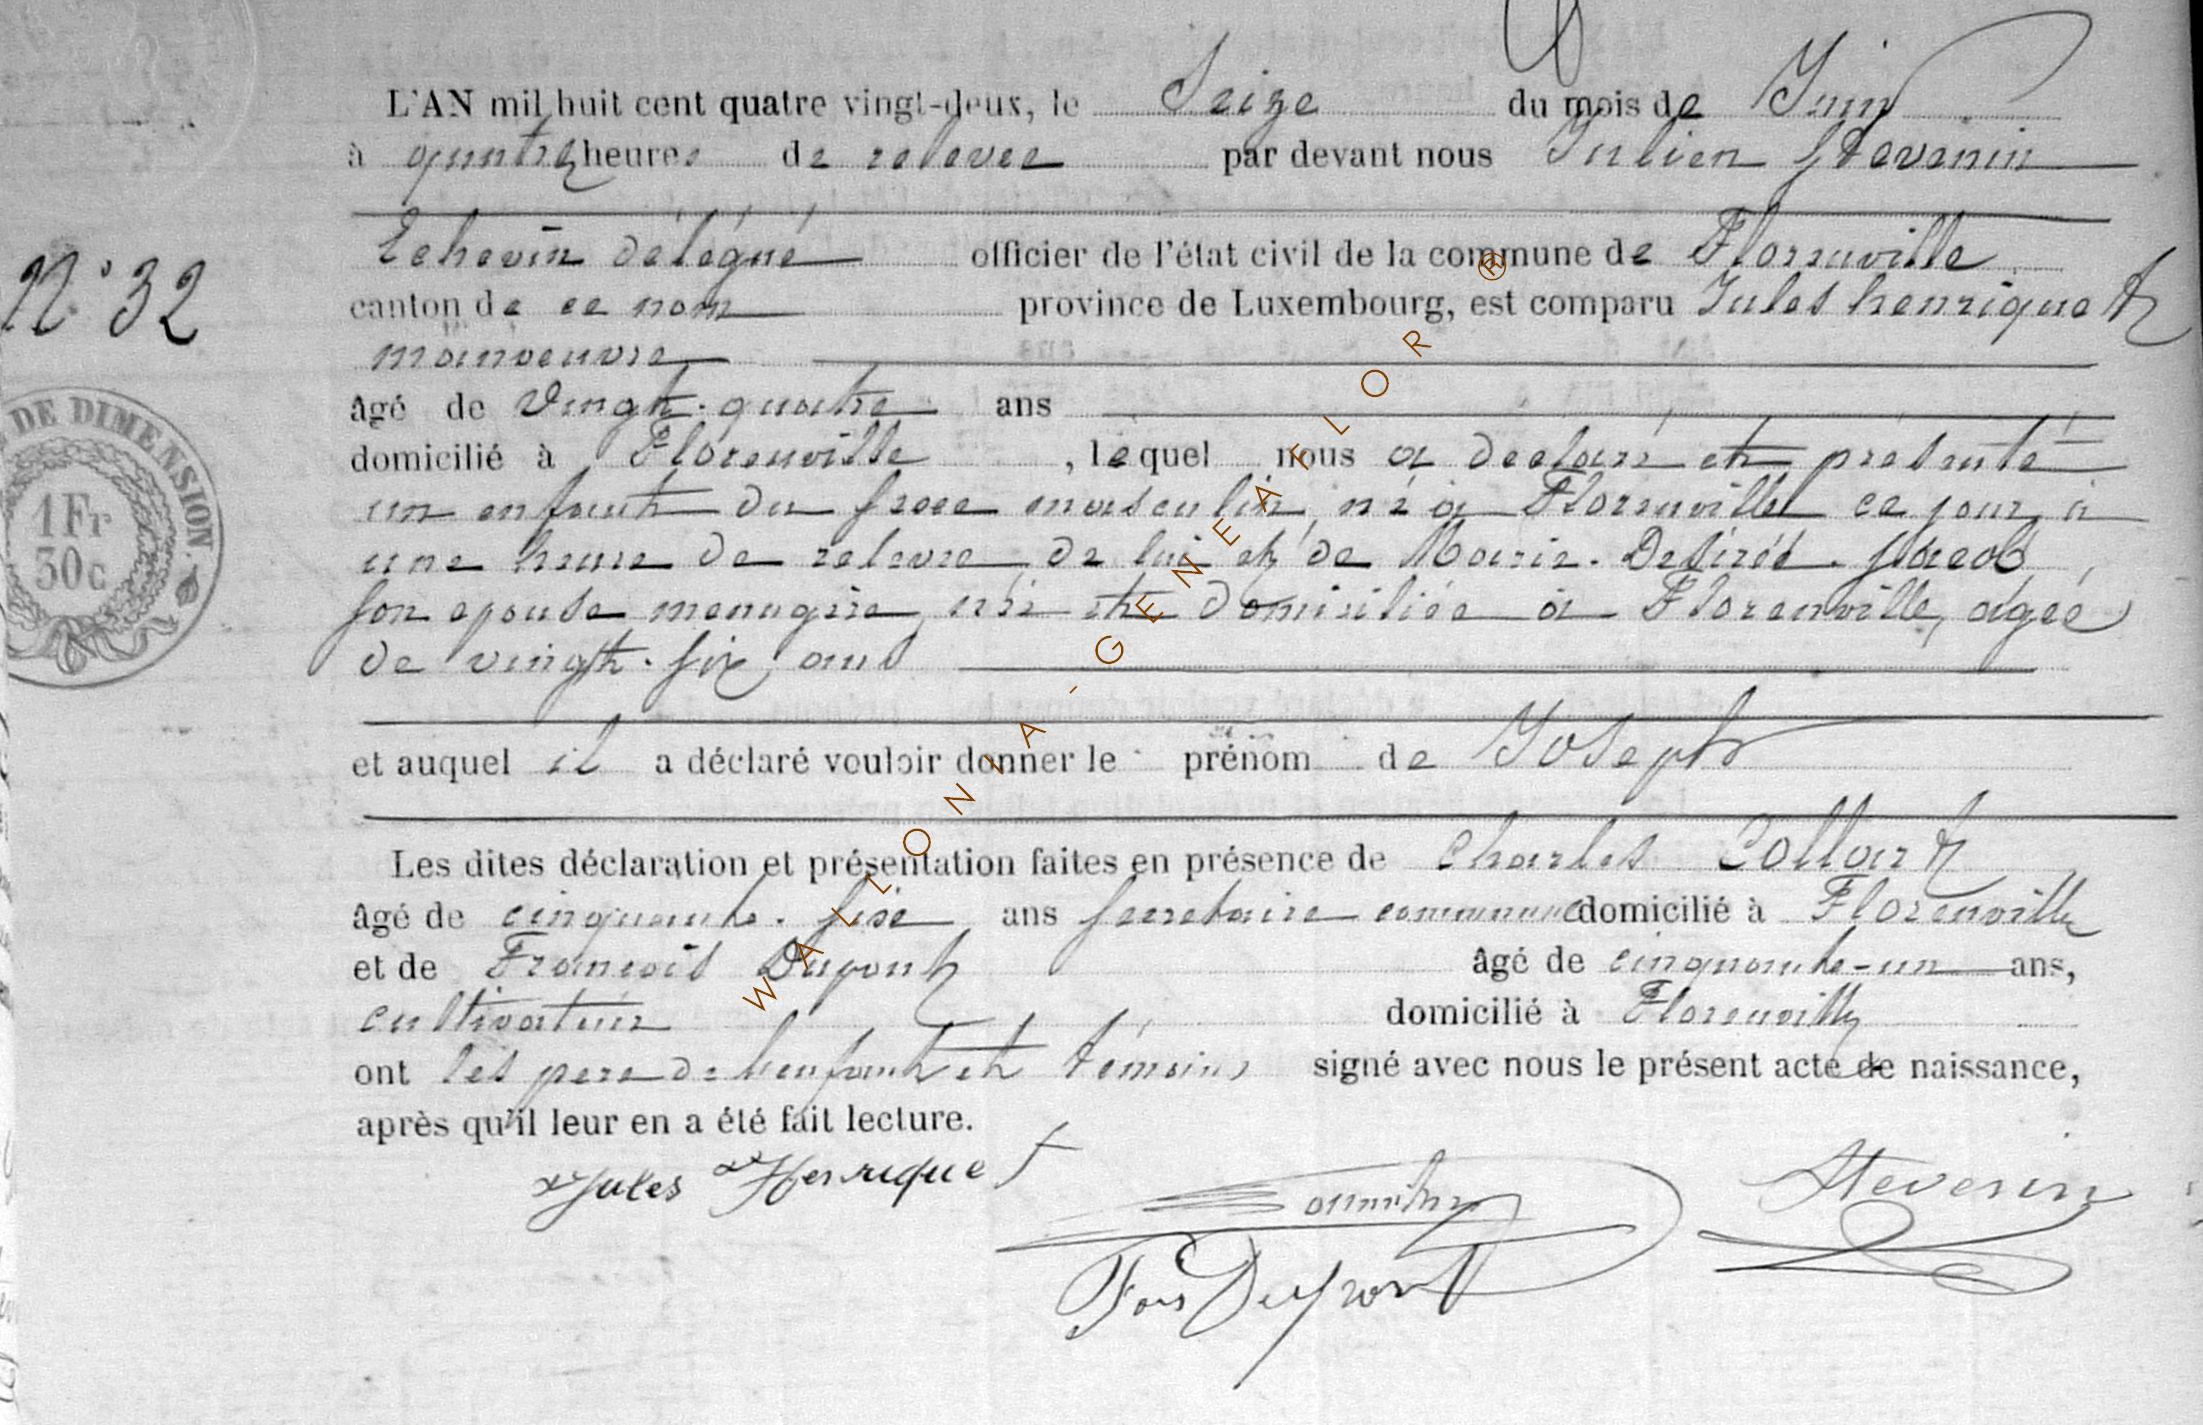 L'AN mil huit cent quatre vingt-deux, le Seize du mois de Juin
à quatre heures de relevee par devant nous Julien Stevenin
Echevin délégué officier de l'état civil de la commune de Florenville
N° 32
canton de ce nom province de Luxembourg, est comparu Jules henriquet
manoeuvre
âgé de Vingt-quatre ans
domicilié à Florenville, lequel nous a declaré et présenté
un enfant du sexe masculin, né à Florenville ce jour, à
une heure de relevee, de lui et de Marie-Desirée Jacob
son epouse menagère, née et domiciliée à Florenville, agée
de vingt-six ans
DE DIMENSION.
1Fr
30c
et auquel il a déclaré vouloir donner le prénom de Joseph
Les dites déclaration et présentation faites en présence de Charles Collart
âgé de cinquante-sise ans secretaire communal domicilié à Florenville
et de François Dupont âgé de cinquante-un ans,
cultivateur domicilié à Florenville
ont les pere de l'enfant et témoins signé avec nous le présent acte de naissance,
après qu'il leur en a été fait lecture.
Jules Henriquet
Stevenin
Fois Dupont
WALLONIA-GENEAFLOR ®